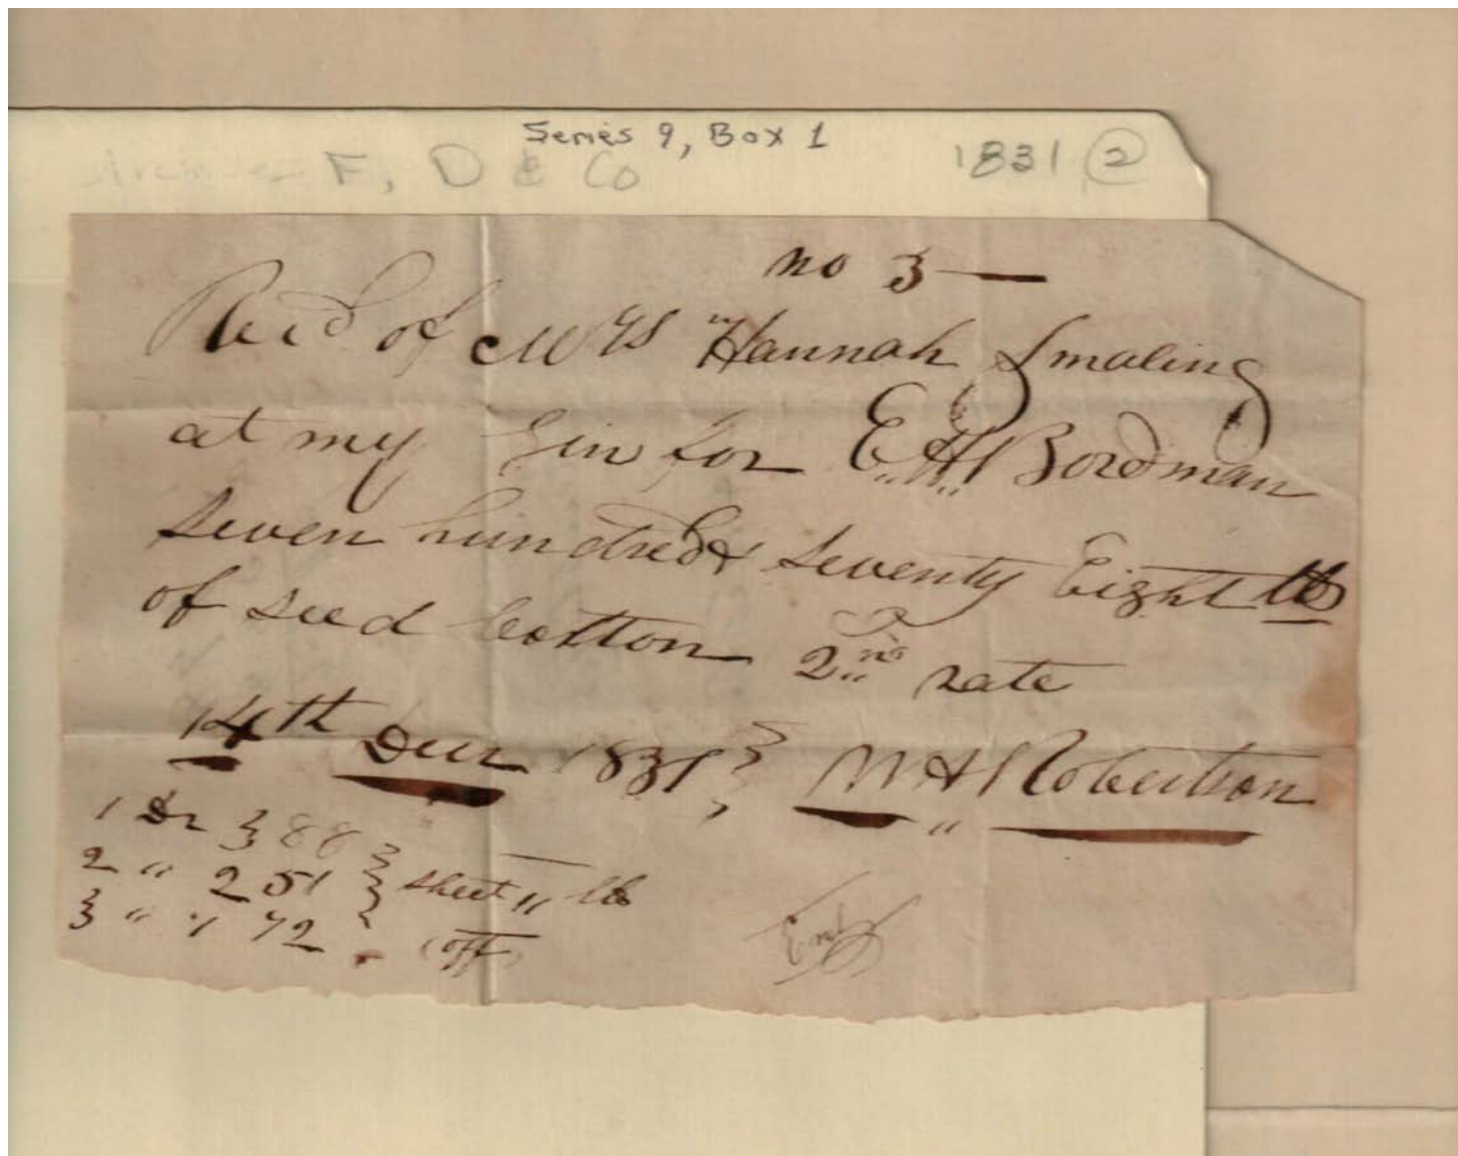 Series 9, Box 1
F, D & Co 1831 2
no 3
Recd of Mrs Hannah Smaling
at my Gin for E. H. Bordman
Seven hundred & Seventy Eight lbs
of Seed Cotton 2nd rate
14th Decr 1831 W H Robertson
1 Dr 88
2 " 251 Sheet " lb
3 " 472 (off)